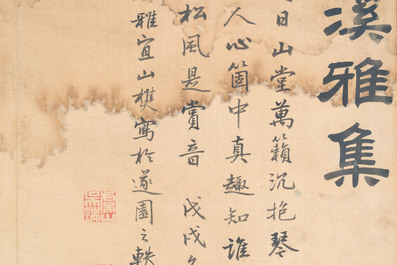 溪雅集
日山堂萬籟沉抱琴
人心箇中真趣知誰
松風是賞音 戊戌
雅宜山樵寫於遂園之軼